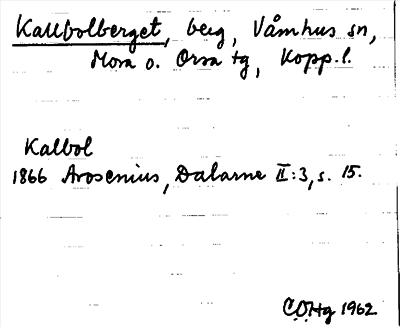 Kallbolberget, berg, Våmhus sn,
Mora o. Orsa tg, Kopp. l.
Kalbol
1866 Arosenius, Dalarne II:3, s. 15.
C.O.Hg 1962